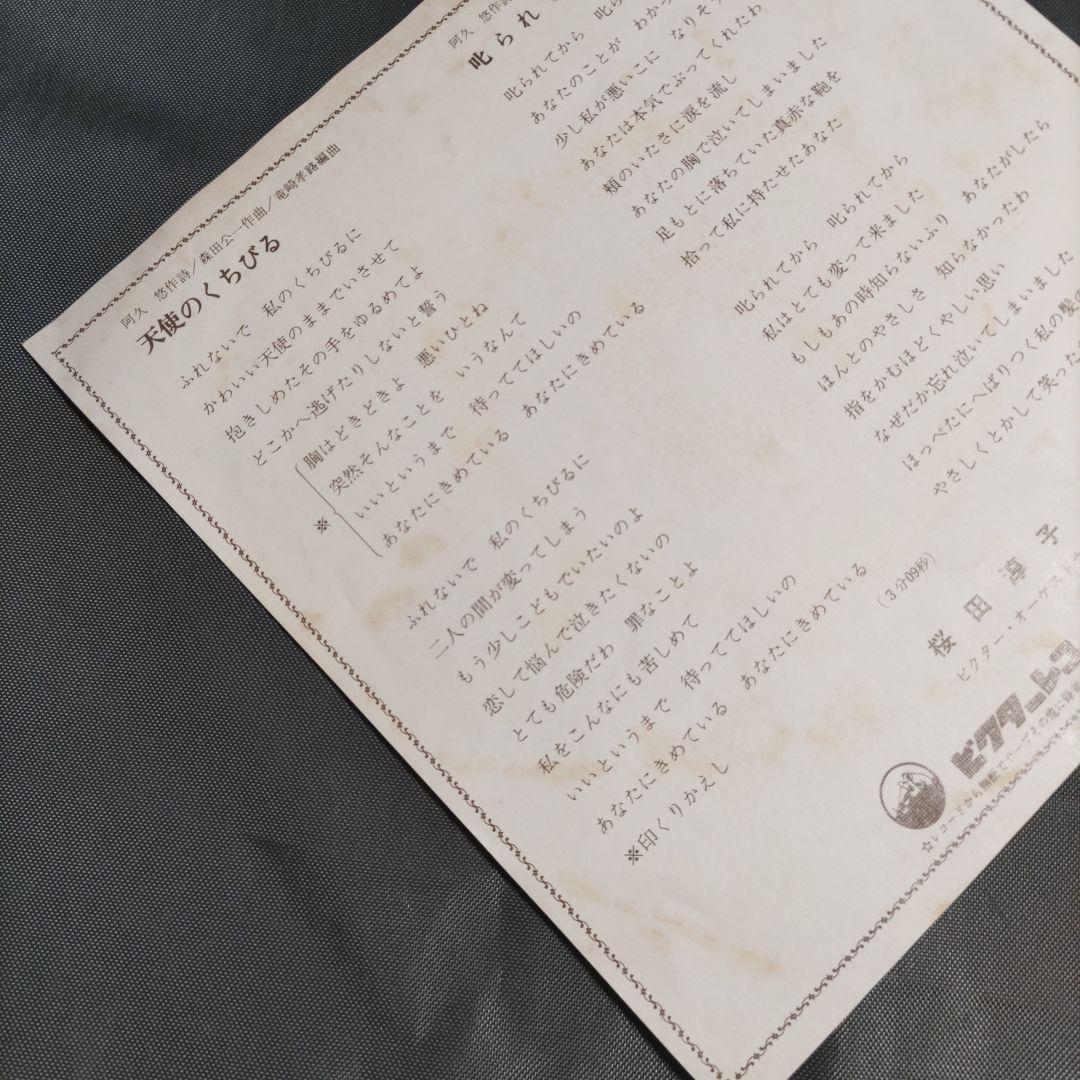 阿久 悠作詩／森田公一作曲／竜崎孝路編曲
天使のくちびる
ふれないで 私のくちびるに
かわいい天使のままでいさせて
抱きしめたその手をゆるめてよ
どこかへ逃げたりしないと誓う
※
胸はどきどきよ 悪いひとね
突然そんなことを いうなんて
いいというまで 待っててほしいの
あなたにきめている あなたにきめている
ふれないで 私のくちびるに
二人の間が変ってしまう
もう少しこどもでいたいのよ
恋して悩んで泣きたくないの
とても危険だわ 罪なことよ
私をこんなにも苦しめて
いいというまで 待っててほしいの
あなたにきめている あなたにきめている
※印くりかえし
阿久 悠作詩
叱られ
叱られてから
あなたのことが わかっ
少し私が悪いこに なりそう
あなたは本気でぶってくれたわ
頬のいたさに涙を流し
あなたの胸で泣いてしまいました
足もとに落ちていた真赤な鞄を
拾って私に持たせたあなた
叱られてから 叱られてから
私はとても変って来ました
もしもあの時知らないふり あなたがしたら
ほんとのやさしさ 知らなかったわ
指をかむほどくやしい思い
なぜだか忘れ泣いてしまいました
ほっぺたにへばりつく私の髪の
やさしくとかして笑った
(3分09秒)
桜田淳子
ビクター・オーケストラ
ビクターレコ
☆レコードから